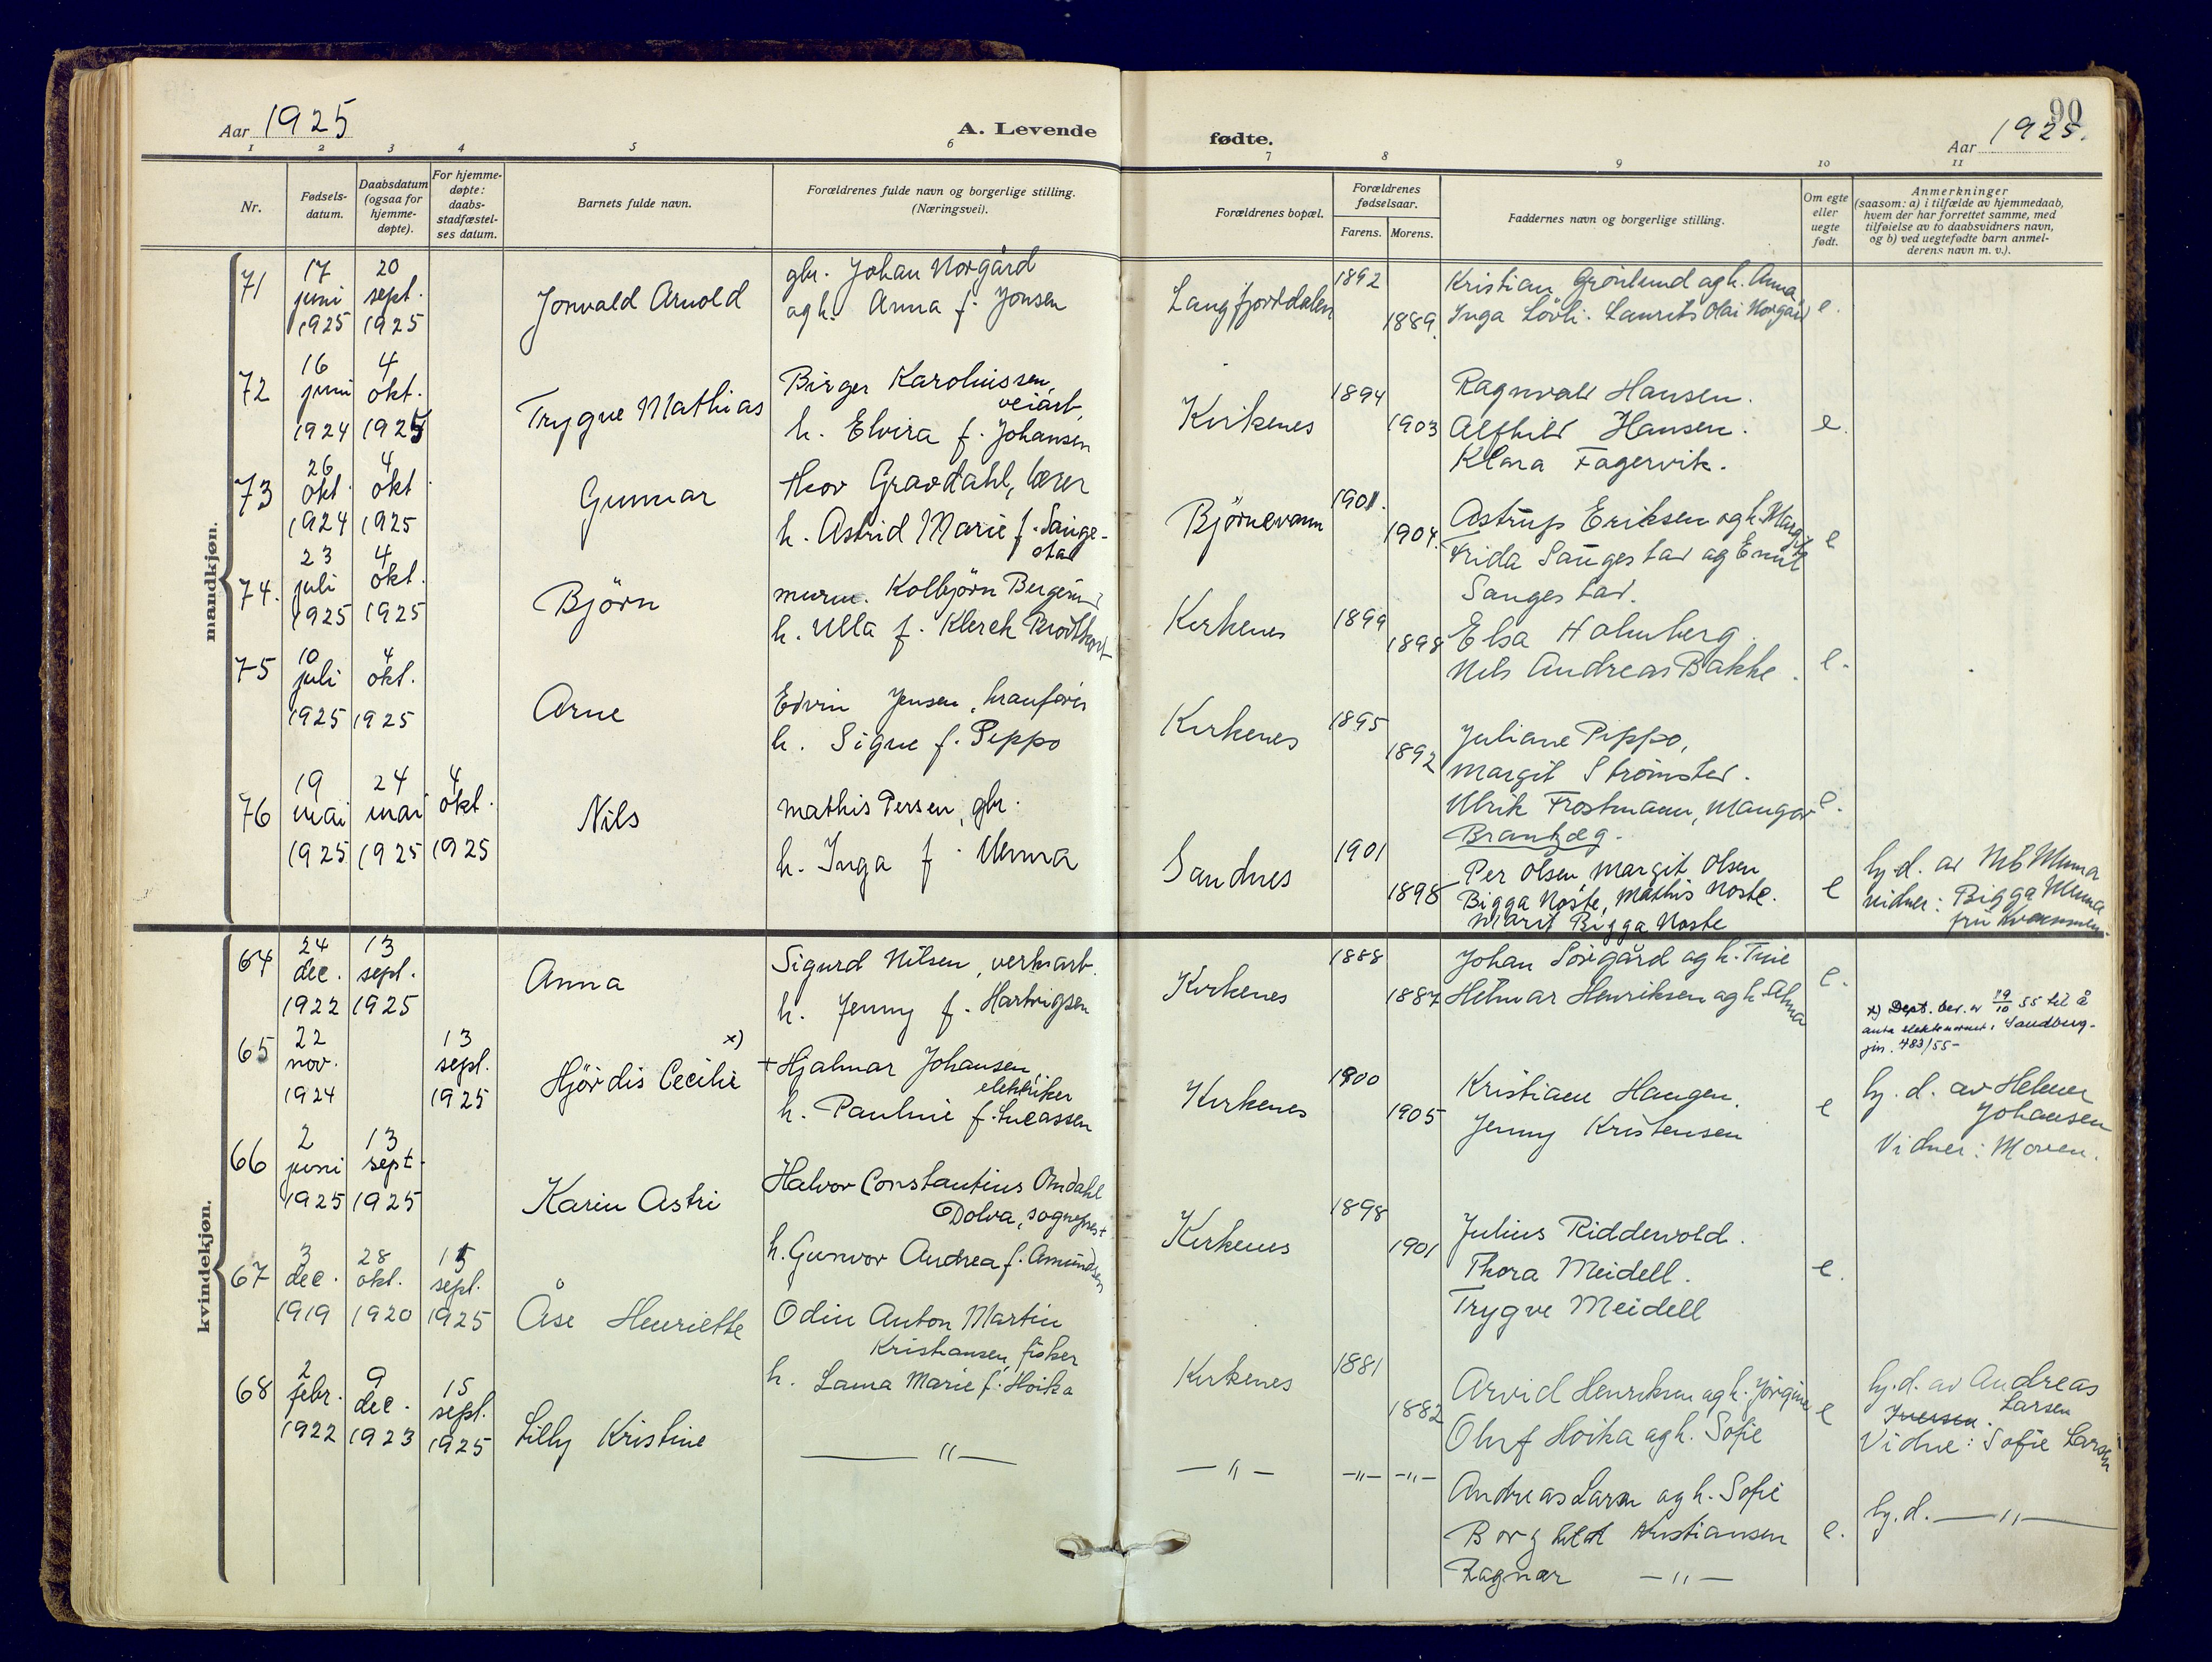 Aar 1925
A. Levende
fødte.
90
Aar 1925.
1 2 3 4 5 6 7 8 9 10 11
Nr.
Fødsels-
datum.
Daabsdatum
(ogsaa for
hjemme-
døpte).
For hjemme-
døpte:
daabs-
stadfæstel-
ses datum.
Barnets fulde navn.
Forældrenes fulde navn og borgerlige stilling.
(Næringsvei).
Forældrenes bopæl.
Forældrenes
fødselsaar.
Farens. Morens.
Faddernes navn og borgerlige stilling.
Om egte
eller
uegte
født.
Anmerkninger
(saasom: a) i tilfælde av hjemmedaab,
hvem der har forrettet samme, med
tilføielse av to daabsvidners navn,
og b) ved uegtefødte barn anmel-
derens navn m. v.).
mandkjøn.
71
17
juni
1925
20
sept.
1925
Jonvald Arnold
gbr. Johan Norgård
og h. Anna f. Jonsen
Langfjorddalen
1892
1889.
Kristian Grönlund og h. Anna
Inga Lövli. Laurits Olai Norgård
e.
72
16
juni
1924
4
okt.
1925
Trygve Mathias
Birger Karoliussen,
veiarb.
h. Elvira f. Johansen
Kirkenes
1894
1903
Ragnvald Hansen.
Alfhild Hansen.
Klara Fagervik.
e.
73
26
okt.
1924
4
okt.
1925
Gunnar
Thor Gravdahl, lærer
h. Astrid Marie f. Sange-
stad
Björnevann
1901.
1904.
Astrup Eriksen og h. Margit
Frida Sangestad og Emil
Sangestad.
e
74.
23
juli
1925
4
okt.
1925
Björn
murm. Kolbjörn Bergerud
h. Ulla f. Klerck Brodtkorb
Kirkenes
1899
1898
Elsa Holmberg.
Nils Andreas Bakke.
e.
75
10
juli
1925
4
okt.
1925
Arne
Edvin Jensen, kranförer
h. Signe f. Pippo
Kirkenes
1895
1892
Juliane Pippo,
Margit Strömsted.
Ulrik Frostmann, Mangor
Brantzæg.
e.
76
19
mai
1925
24
mai
1925
4
okt.
1925
Nils
Mathis Persen, gbr.
h. Inga f. Menna
Sandnes
1901
1898
Per Olsen, Margit Olsen
Bigga Noste, Mathis Noste.
Marit Bigga Noste
e
hj.d. av
vidner: Bigga
fru
kvindekjøn.
64
24
dec.
1922
13
sept.
1925
Anna
Sigurd Nilsen, verksarb.
h. Jenny f. Hartvigsen
Kirkenes
1888
1887
Johan Sörgård og h. Tine
Helmar Henriksen og h. Alma
e.
x) Dept. bev. av 19/10 55 til å
anta slektsnavnet: Sandberg-
jnr. 483/55-
65
22
nov.
1924
13
sept.
1925
Hjördis Cecilie x)
+ Hjalmar Johansen,
elektriker
h. Pauline f. Lucassen
Kirkenes
1900
1905
Kristiane Haugen.
Jenny Kristensen
e
hj. d. av Helmer
Johansen
Vidner: Moren.
66
2
juni
1925
13
sept.
1925
Karin Astri
Halvor Constantius Omdahl
Dolva, sogneprest
h. Gunvor Andrea f. Amundsen
Kirkenes
1898
1901
Julius Ridderwold.
Thora Meidell.
Trygve Meidell
e.
67
3
dec.
1919
28
okt.
1920
15
sept.
1925
Åse Henriette
Odin Anton Martin
Kristiansen, fisker
h. Laura Marie f. Hoika
Kirkenes
1881
1882
Arvid Henriksen og h. Jörgine
Oluf Hoika og h. Sofie
e
hj.d. av Andreas
Iversen. Larsen
Vidne: Sofie Larsen
68
2
febr.
1922
9
dec.
1923
15
sept.
1925
Lilly Kristine
— " —
— " —
— " —
— " —
Andreas Larsen og h. Sofie
Borghild Kristiansen
Ragnar — " —
e.
hj.d. — " —